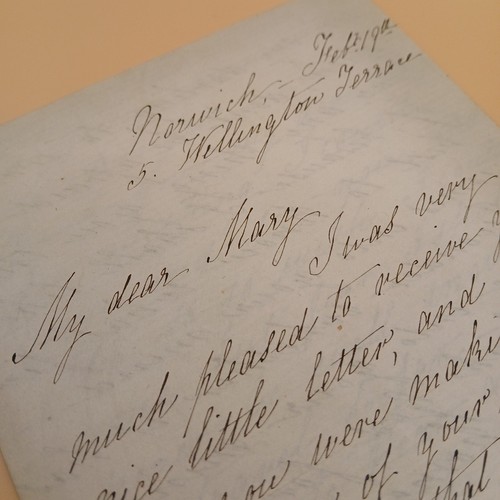 Norwich, Feby 19th
5. Wellington Terrace
My dear Mary
I was very
much pleased to receive
nice little letter, and
you were maki
of your
that